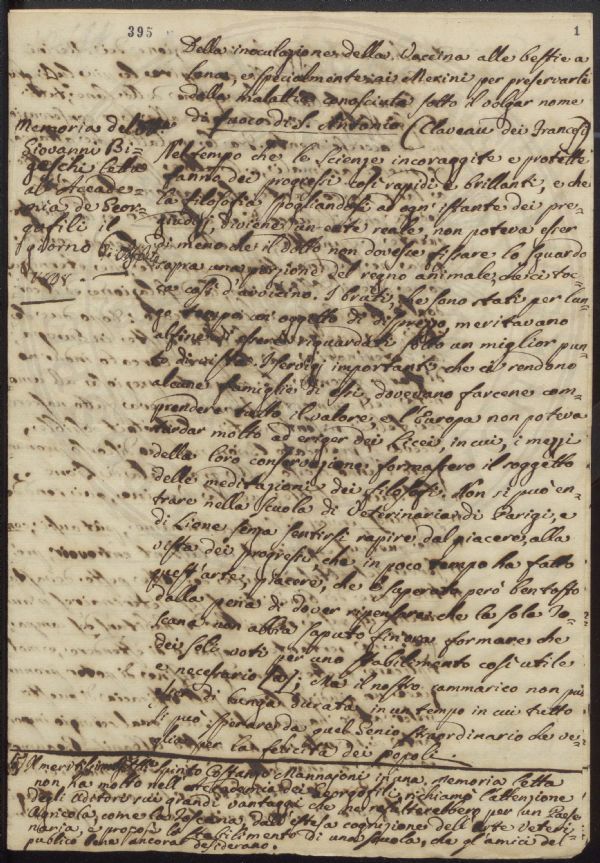 395
1
Della inoculazione della Vaccina alle bestie a
lana, e specialmente ai Merini per preservarli
dalla malattia conosciuta sotto il volgar nome
di fuoco di S. Antonio (Claveau dei Francesi
Memoria del
Giovanni Bi-
letta
all' Accade-
mia de' Geor-
gofili il
giorno
Nel tempo che le Scienze incoraggite e protette
fanno dei progressi così rapidi e brillanti, e che
la filosofia spogliandosi ad ogn' istante dei pre-
giudizj, diviene un ente reale, non poteva esser
di meno che il dotto non dovesse fissare lo sguardo
sopra una porzione del regno animale, che ci toc-
ca così d'avvicino. I bruti, che sono stati per lun-
go tempo un oggetto di disprezzo, meritavano
alfine di essere riguardati sotto un miglior pun-
to di vista. I servigj importanti che ci rendono
alcune famiglie di essi, dovevano farcene com-
prendere tutto il valore, e l'Europa non poteva
tardar molto ad eriger dei Licei, in cui, i mezzi
della loro conservazione formassero il soggetto
delle meditazioni dei filosofi. Non si può en-
trare nella Scuola di Veterinaria di Parigi, e
di Lione senza sentirsi rapire dal piacere, alla
vista dei progressi, che in poco tempo ha fatto
quest'arte; piacere, che è superato però ben tosto
dalla pena di dover ripensare che la sola To-
scana non abbia saputo finora formare che
dei soli voti per uno stabilimento così utile
e necessario. Ma il nostro rammarico non può
esser di lunga durata, in un tempo in cui tutto
si può sperare da quel Genio straordinario che ve-
glia per la felicità dei popoli
Spirito Costanzo Mannajoni in una memoria letta
non ha molto nell' Accademia dei Georgofili, richiamò l'attenzione
degli Auditori sui grandi vantaggi che ne risulterebbero per un Paese
Agricola, come la Toscana, dall' estesa cognizione dell' Arte Veteri-
naria, e propose lo stabilimento di una scuola, che gl' amici del
publico bene ancora desiderano.